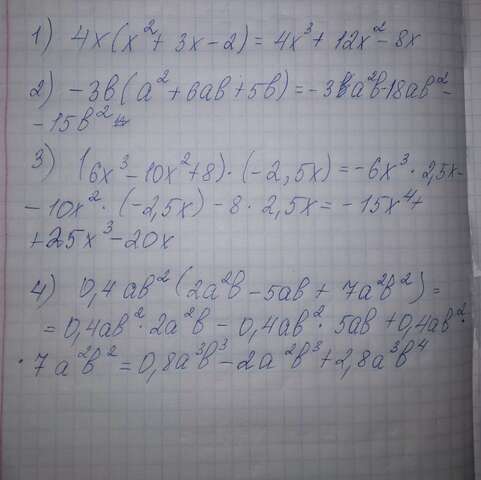 1) 4x(x² + 3x - 2) = 4x³ + 12x² - 8x
2) -3b(a² + 6ab + 5b) = -3a²b - 18ab² -
- 15b²
3) (6x³ - 10x² + 8) · (-2,5x) = -6x³ · 2,5x -
- 10x² · (-2,5x) - 8 · 2,5x = -15x⁴ +
+ 25x³ - 20x
4) 0,4ab² (2a²b - 5ab + 7a²b²) =
= 0,4ab² · 2a²b - 0,4ab² · 5ab + 0,4ab² ·
· 7a²b² = 0,8a³b³ - 2a²b³ + 2,8a³b⁴